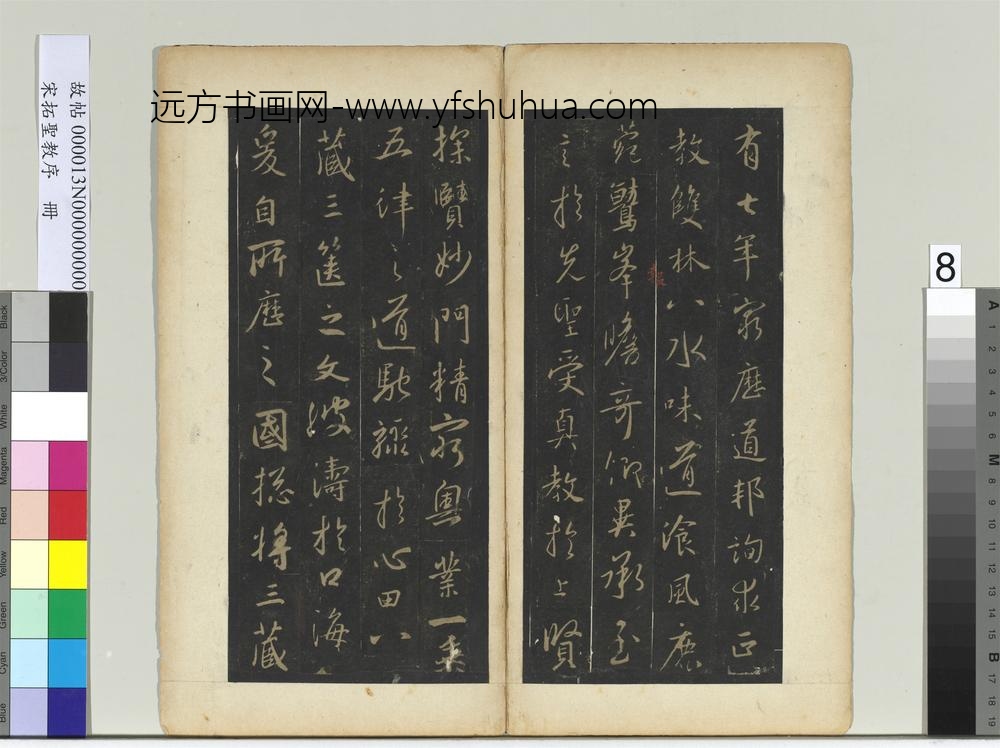 有七年窮歷道邦詢求正
教雙林八水味道飡風鹿
菀鷲峯瞻奇仰異承至
言於先聖受真教於上賢
探賾妙門精窮奧業一乘
五律之道馳驟於心田八
藏三篋之文波濤於口海
爰自所歷之國総將三藏
远方书画网-www.yfshuhua.com
故帖 000013N000000000
宋拓聖教序 冊
8
Black
3/Color
White
Magenta
Red
Yellow
Green
Cyan
Blue
A 1 2 3 4 5 6 M 8 9 10 11 12 13 14 15 B 17 18 19